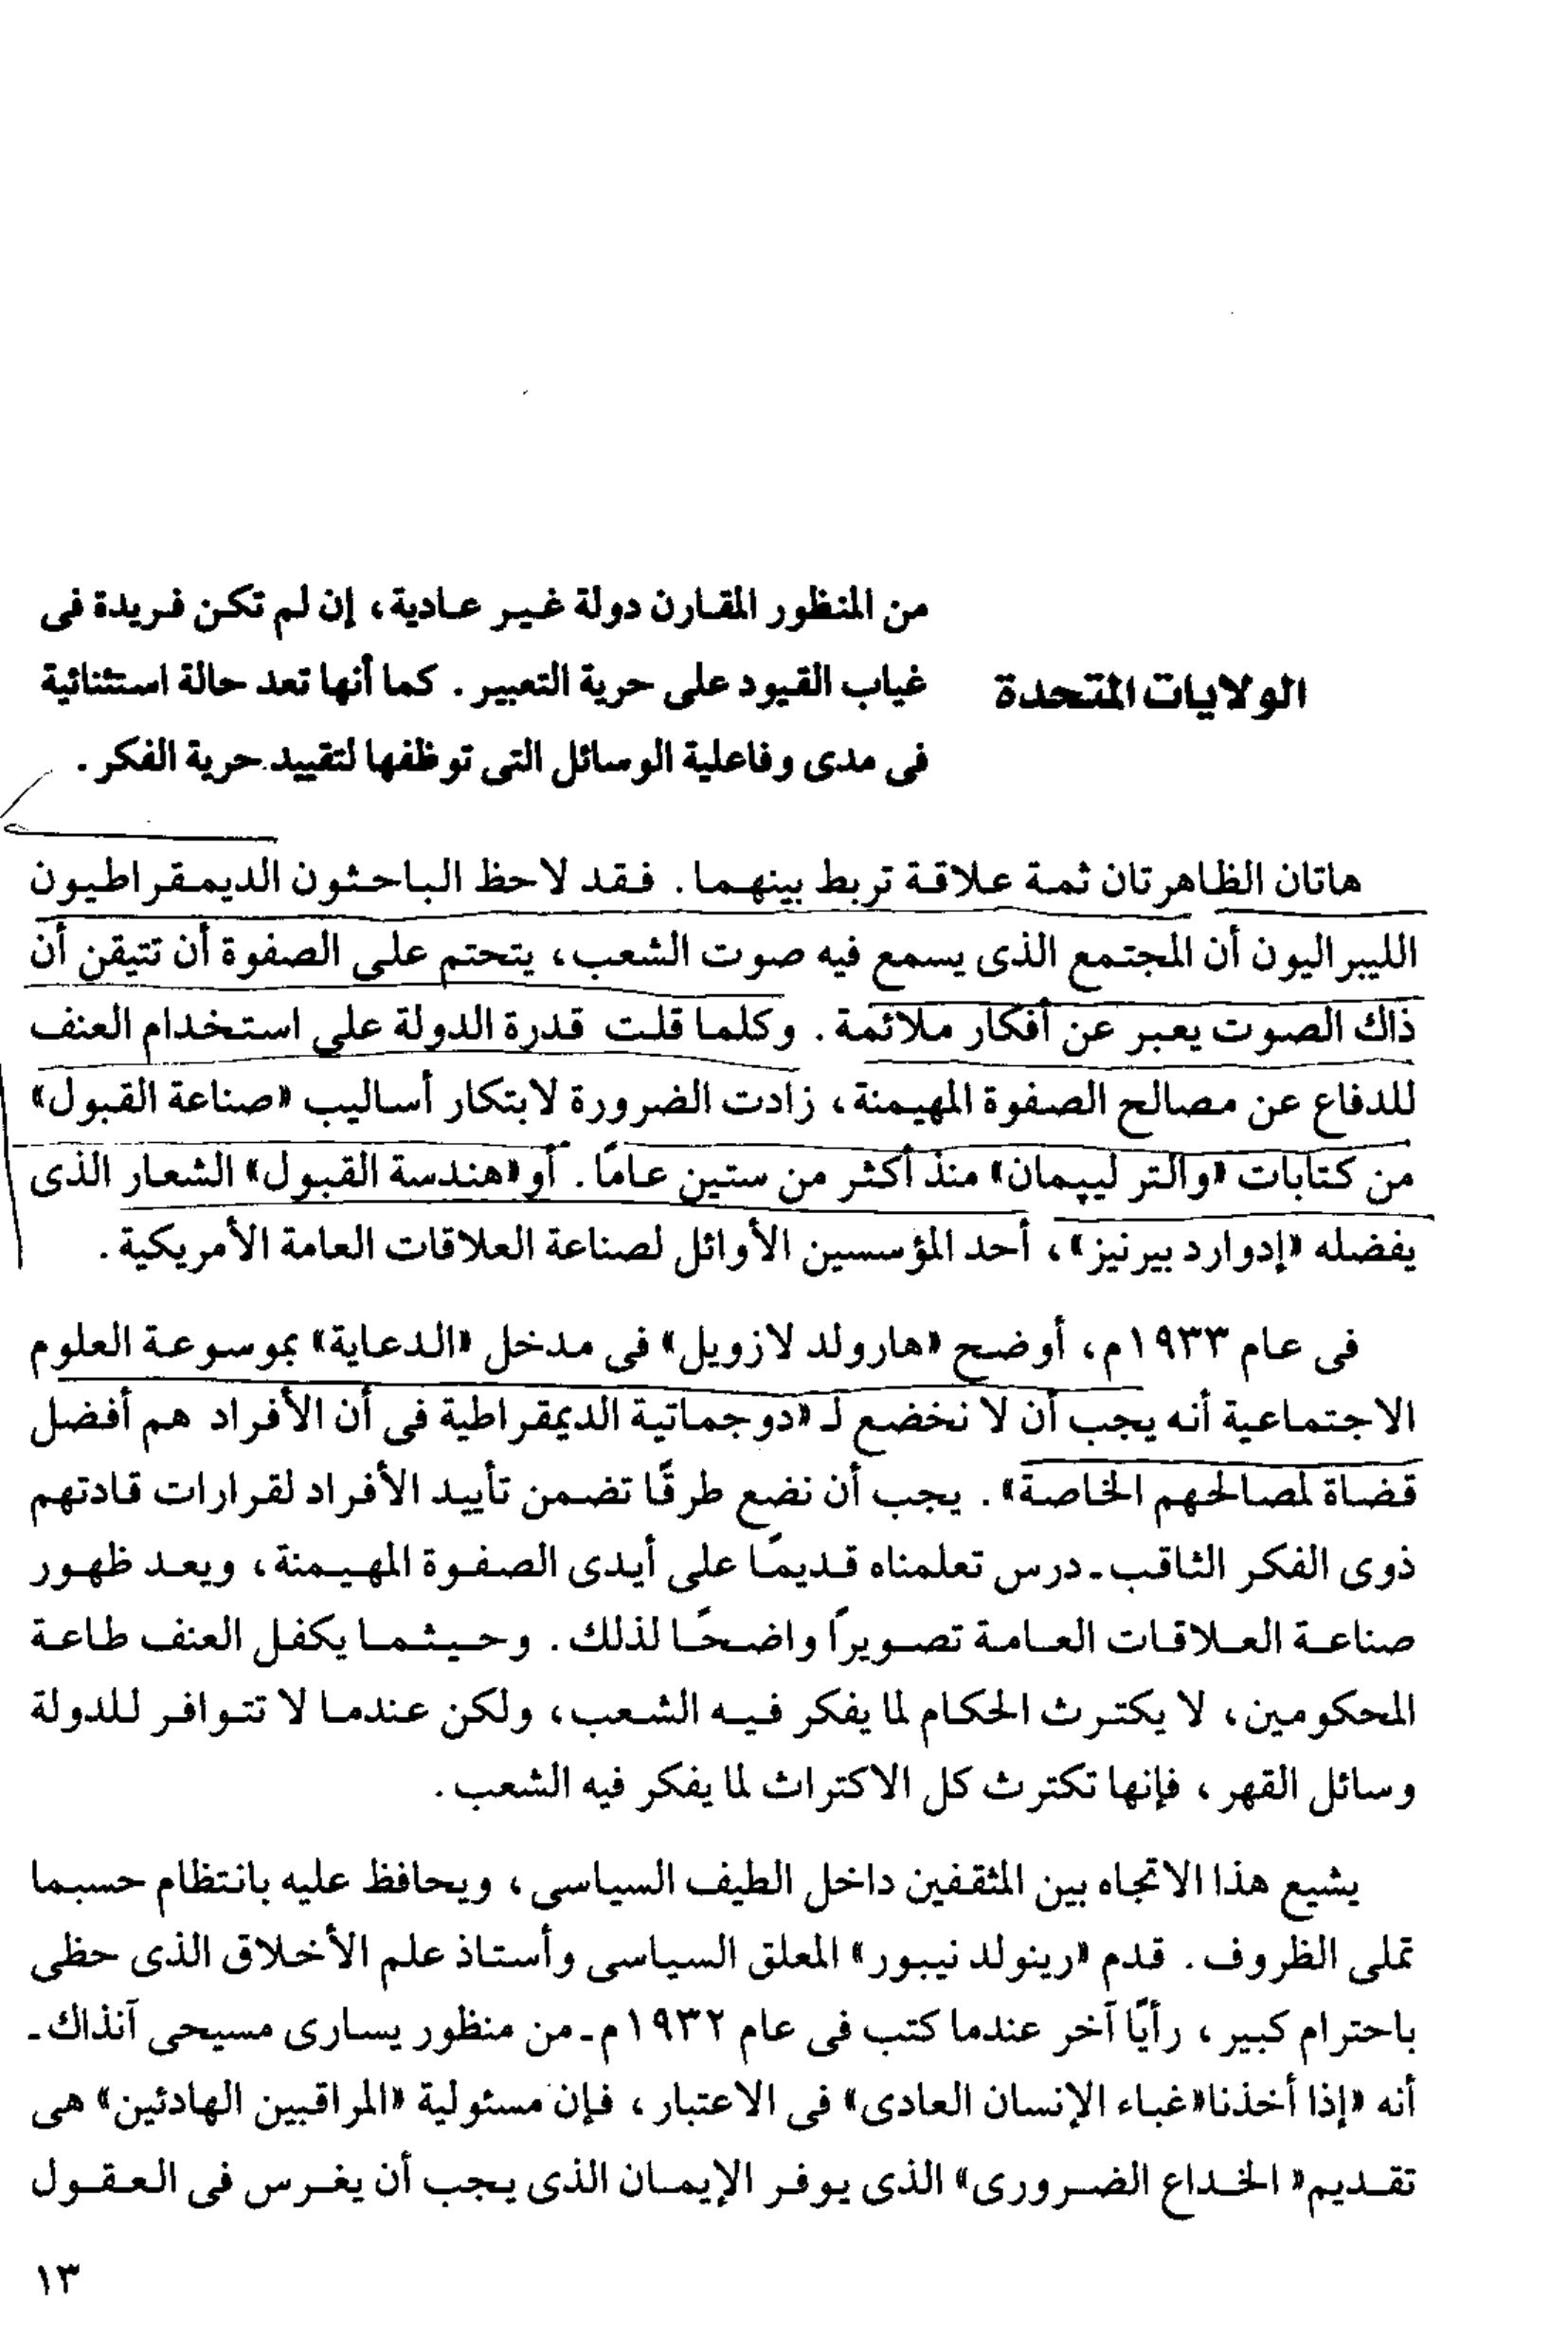 الولايات المتحدة
من المنظور المقارن دولة غير عادية، إن لم تكن فريدة فى
غياب القيود على حرية التعبير. كما أنها تعد حالة استثنائية
فى مدى وفاعلية الوسائل التى توظفها لتقييد حرية الفكر.
هاتان الظاهرتان ثمة علاقة تربط بينهما. فقد لاحظ الباحثون الديمقراطيون
الليبراليون أن المجتمع الذى يسمع فيه صوت الشعب، يتحتم على الصفوة أن تتيقن أن
ذاك الصوت يعبر عن أفكار ملائمة. وكلما قلت قدرة الدولة على استخدام العنف
للدفاع عن مصالح الصفوة المهيمنة، زادت الضرورة لابتكار أساليب «صناعة القبول»
من كتابات «والتر ليپمان» منذ أكثر من ستين عامًا. أو «هندسة القبول» الشعار الذى
يفضله «إدوارد بيرنيز»، أحد المؤسسين الأوائل لصناعة العلاقات العامة الأمريكية.
فى عام ١٩٣٣م، أوضح «هارولد لازويل» فى مدخل «الدعاية» بموسوعة العلوم
الاجتماعية أنه يجب أن لا نخضع لـ «دوجماتية الديمقراطية فى أن الأفراد هم أفضل
قضاة لمصالحهم الخاصة». يجب أن نضع طرقًا تضمن تأييد الأفراد لقرارات قادتهم
ذوى الفكر الثاقب ـ درس تعلمناه قديمًا على أيدى الصفوة المهيمنة، ويعد ظهور
صناعة العلاقات العامة تصويرًا واضحًا لذلك. وحيثما يكفل العنف طاعة
المحكومين، لا يكترث الحكام لما يفكر فيه الشعب، ولكن عندما لا تتوافر للدولة
وسائل القهر، فإنها تكترث كل الاكتراث لما يفكر فيه الشعب.
يشيع هذا الاتجاه بين المثقفين داخل الطيف السياسى، ويحافظ عليه بانتظام حسبما
تملى الظروف. قدم «رينولد نيبور» المعلق السياسى وأستاذ علم الأخلاق الذى حظى
باحترام كبير، رأيًا آخر عندما كتب فى عام ١٩٣٢م ـ من منظور يسارى مسيحى آنذاك ـ
أنه «إذا أخذنا «غباء الإنسان العادى» فى الاعتبار، فإن مسئولية «المراقبين الهادئين» هى
تقديم «الخداع الضرورى» الذى يوفر الإيمان الذى يجب أن يغرس فى العقول
١٣